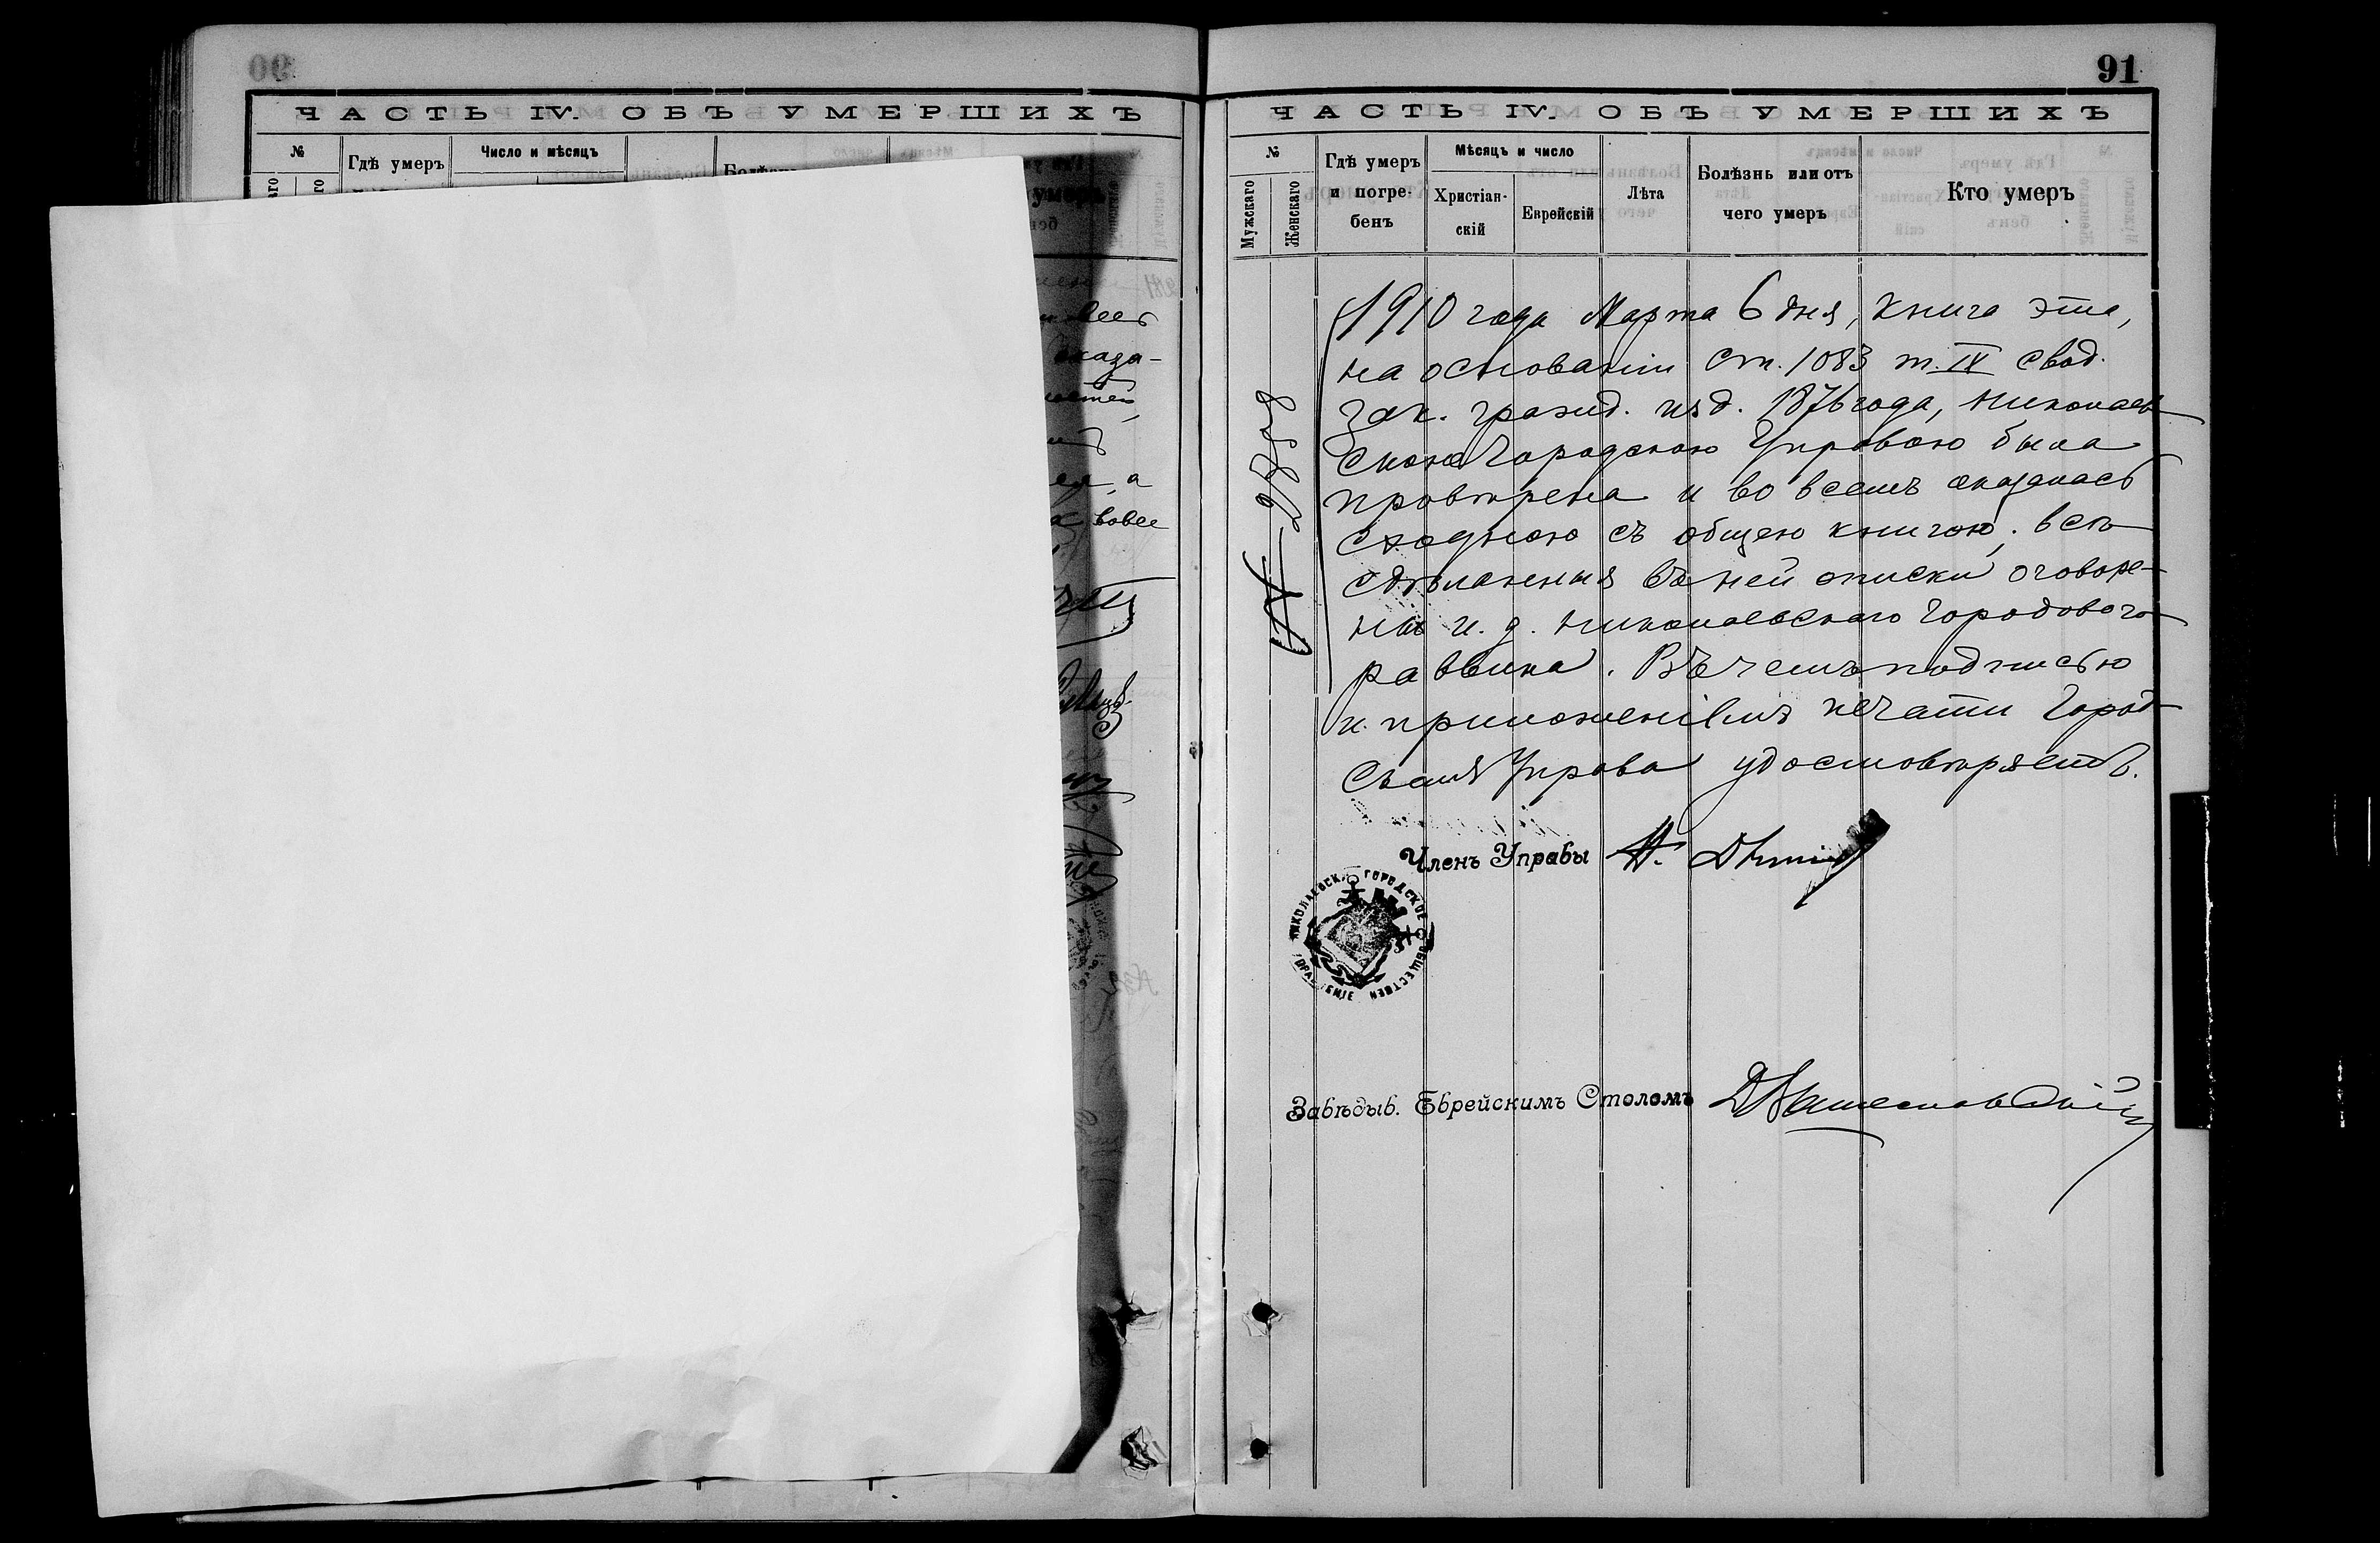 ЧАСТЬ IV. ОБЪ УМЕРШИХЪ
№
Гдѣ умеръ
Число и мѣсяцъ
умеръ
всее
оказа-
а
вовсе
91
ЧАСТЬ IV. ОБЪ УМЕРШИХЪ
№
Мужскаго
Женскаго
Гдѣ умеръ
и погре-
бенъ
Мѣсяцъ и число
Христіан-
скій
Еврейскій
Лѣта
Болѣзнь или отъ
чего умеръ
Кто умеръ
1910 года Марта 6 дня, книга эта,
на основаніи ст. 1083 т. IX свод.
зак. гражд. изд. 1876 года, Николаев-
скою Городскою Управою была
провѣрена и во всемъ оказалась
сходною съ общею книгою; всѣ
сдѣланныя въ ней описки оговоре-
ны и. д. Николаевскаго Городового
раввина. Въ чемъ подписью
и приложеніемъ печати Город-
ская Управа удостовѣряетъ.
№ 2758
Членъ Управы
НИКОЛАЕВСК. ГОРОДСКОЕ ОБЩЕСТВЕН
Завѣдыв. Еврейскимъ Столомъ